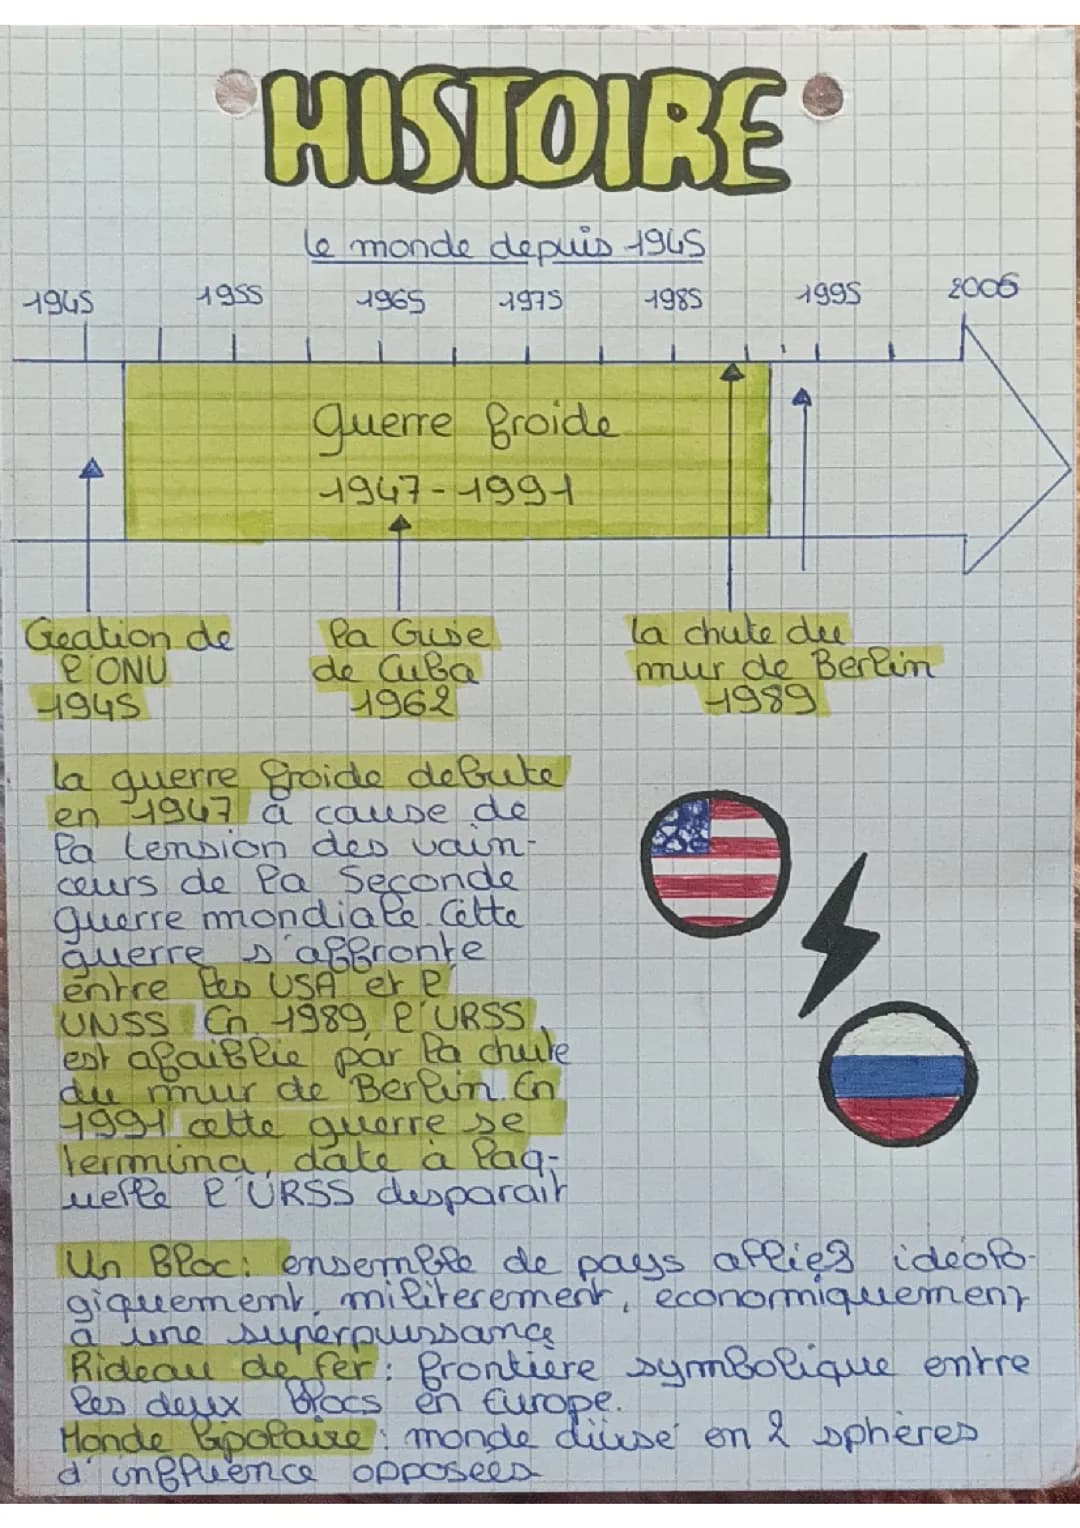 HISTOIRE
le monde depuis 1945
1945 1955 1965 1975 1985 1995 2005
guerre froide
1947-1991
Création de
l'ONU
1945
la Crise
de Cuba
1962
la chute du
mur de Berlin
1989
la guerre froide debute
en 1947 à cause de
la tension des vain-
ceurs de la Seconde
guerre mondiale. Cette
guerre s'affronte
entre les USA et l'
UNSS En 1989, l'URSS
est afaiblie par la chute
du mur de Berlin. En
1991 cette guerre se
termina, date à laq-
uelle l'URSS desparait
Un Bloc: ensemble de pays alliés idéolo-
giquement, militerement, économiquement
à une superpuissance
Rideau de fer: frontière symbolique entre
les deux blocs en Europe.
Monde Bipolaire: monde divisé en 2 sphères
d'influence opposées